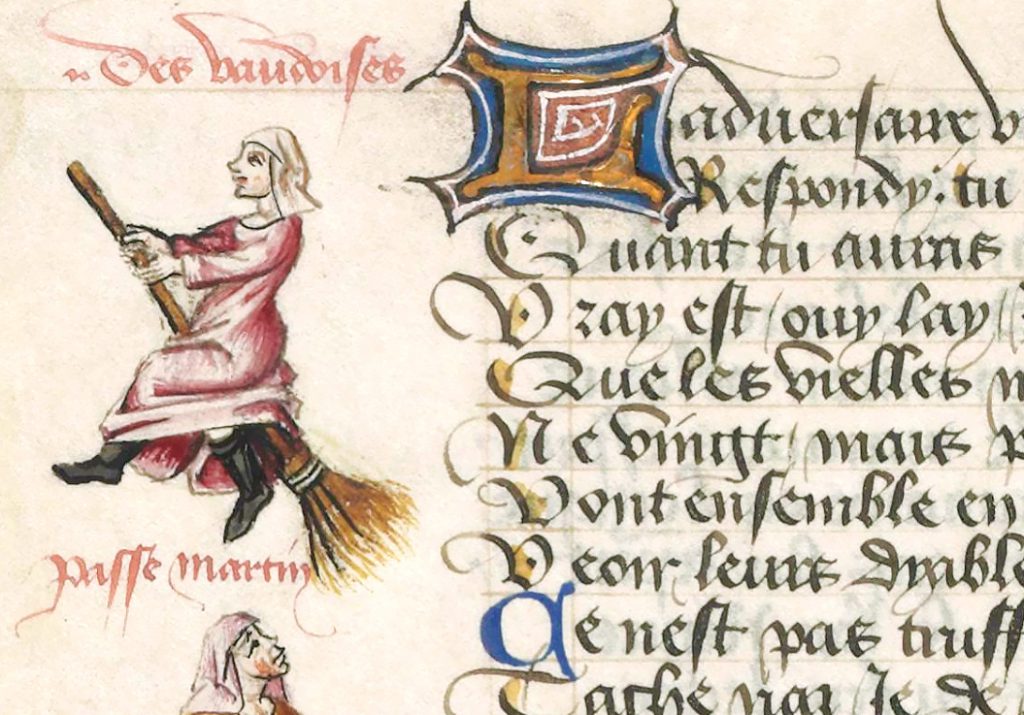 Des vaudoises
Laduersaire
Respondy: tu
Quant tu auras
Vray est ouy lay
Que les vielles
Ne vingt mais
Vont ensemble en
passe martin
Veoir leurs dyable
Ce nest pas truff
Je de